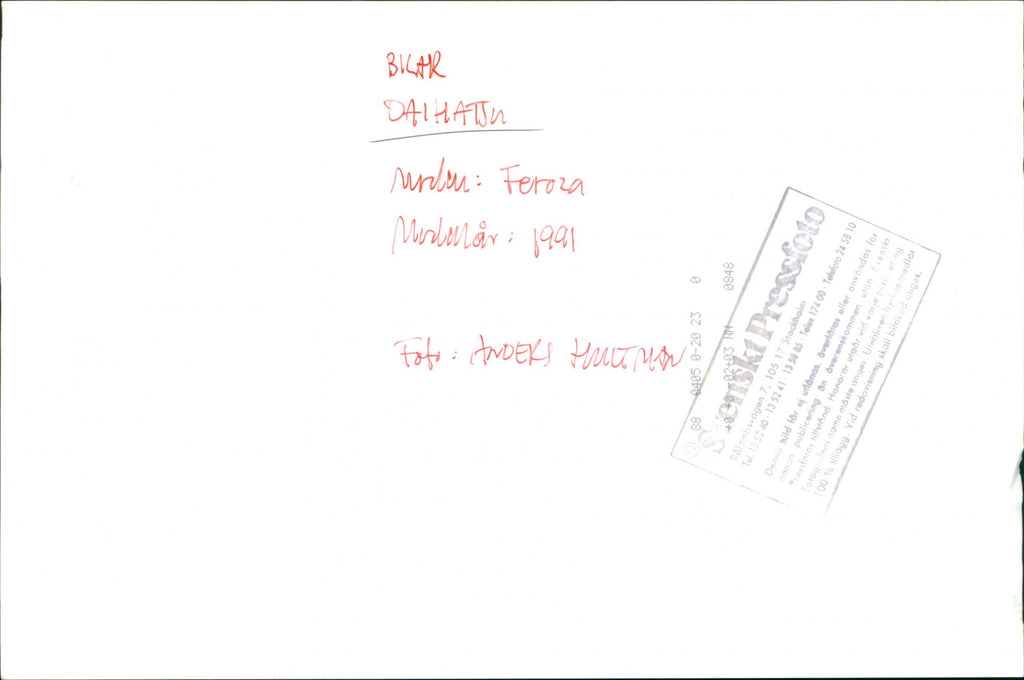 BILAR
DAIHATSU
Modell: Feroza
Modellår: 1991
Foto: ANDERS HULTMAN
88 0405 0-20 23 0
+0 +0 +02+03 NN 0848
© Svenskt Pressfoto
Rålambsvägen 7, 105 17 Stockholm
Tel. 13 52 40 - 13 52 41 - 13 58 85 - Telex 174 00 - Telefoto 24 58 10
Denna bild får ej utlånas, överlåtas eller användas för
annan publicering än överenskommen utan Svenskt
Pressfotos tillstånd. Honorar utgår vid varje publicering
Fotografens namn måste anges. Utebliven byline medför
100 % tillägg. Vid redovisning skall bildkod anges.